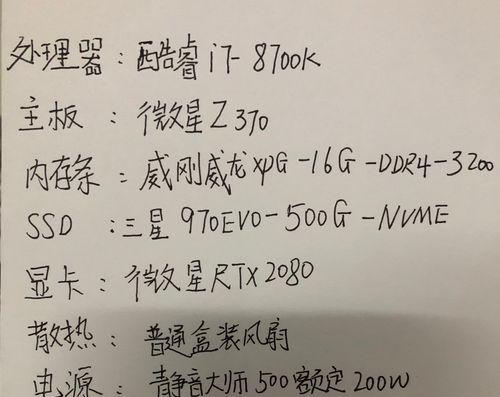 处理器：酷睿i7-8700K
主板：微星Z370
内存条：威刚威龙XPG-16G-DDR4-3200
SSD：三星970EVO-500G-NVME
显卡：微星RTX2080
散热：普通盒装风扇
电源：静音大师500额定200W